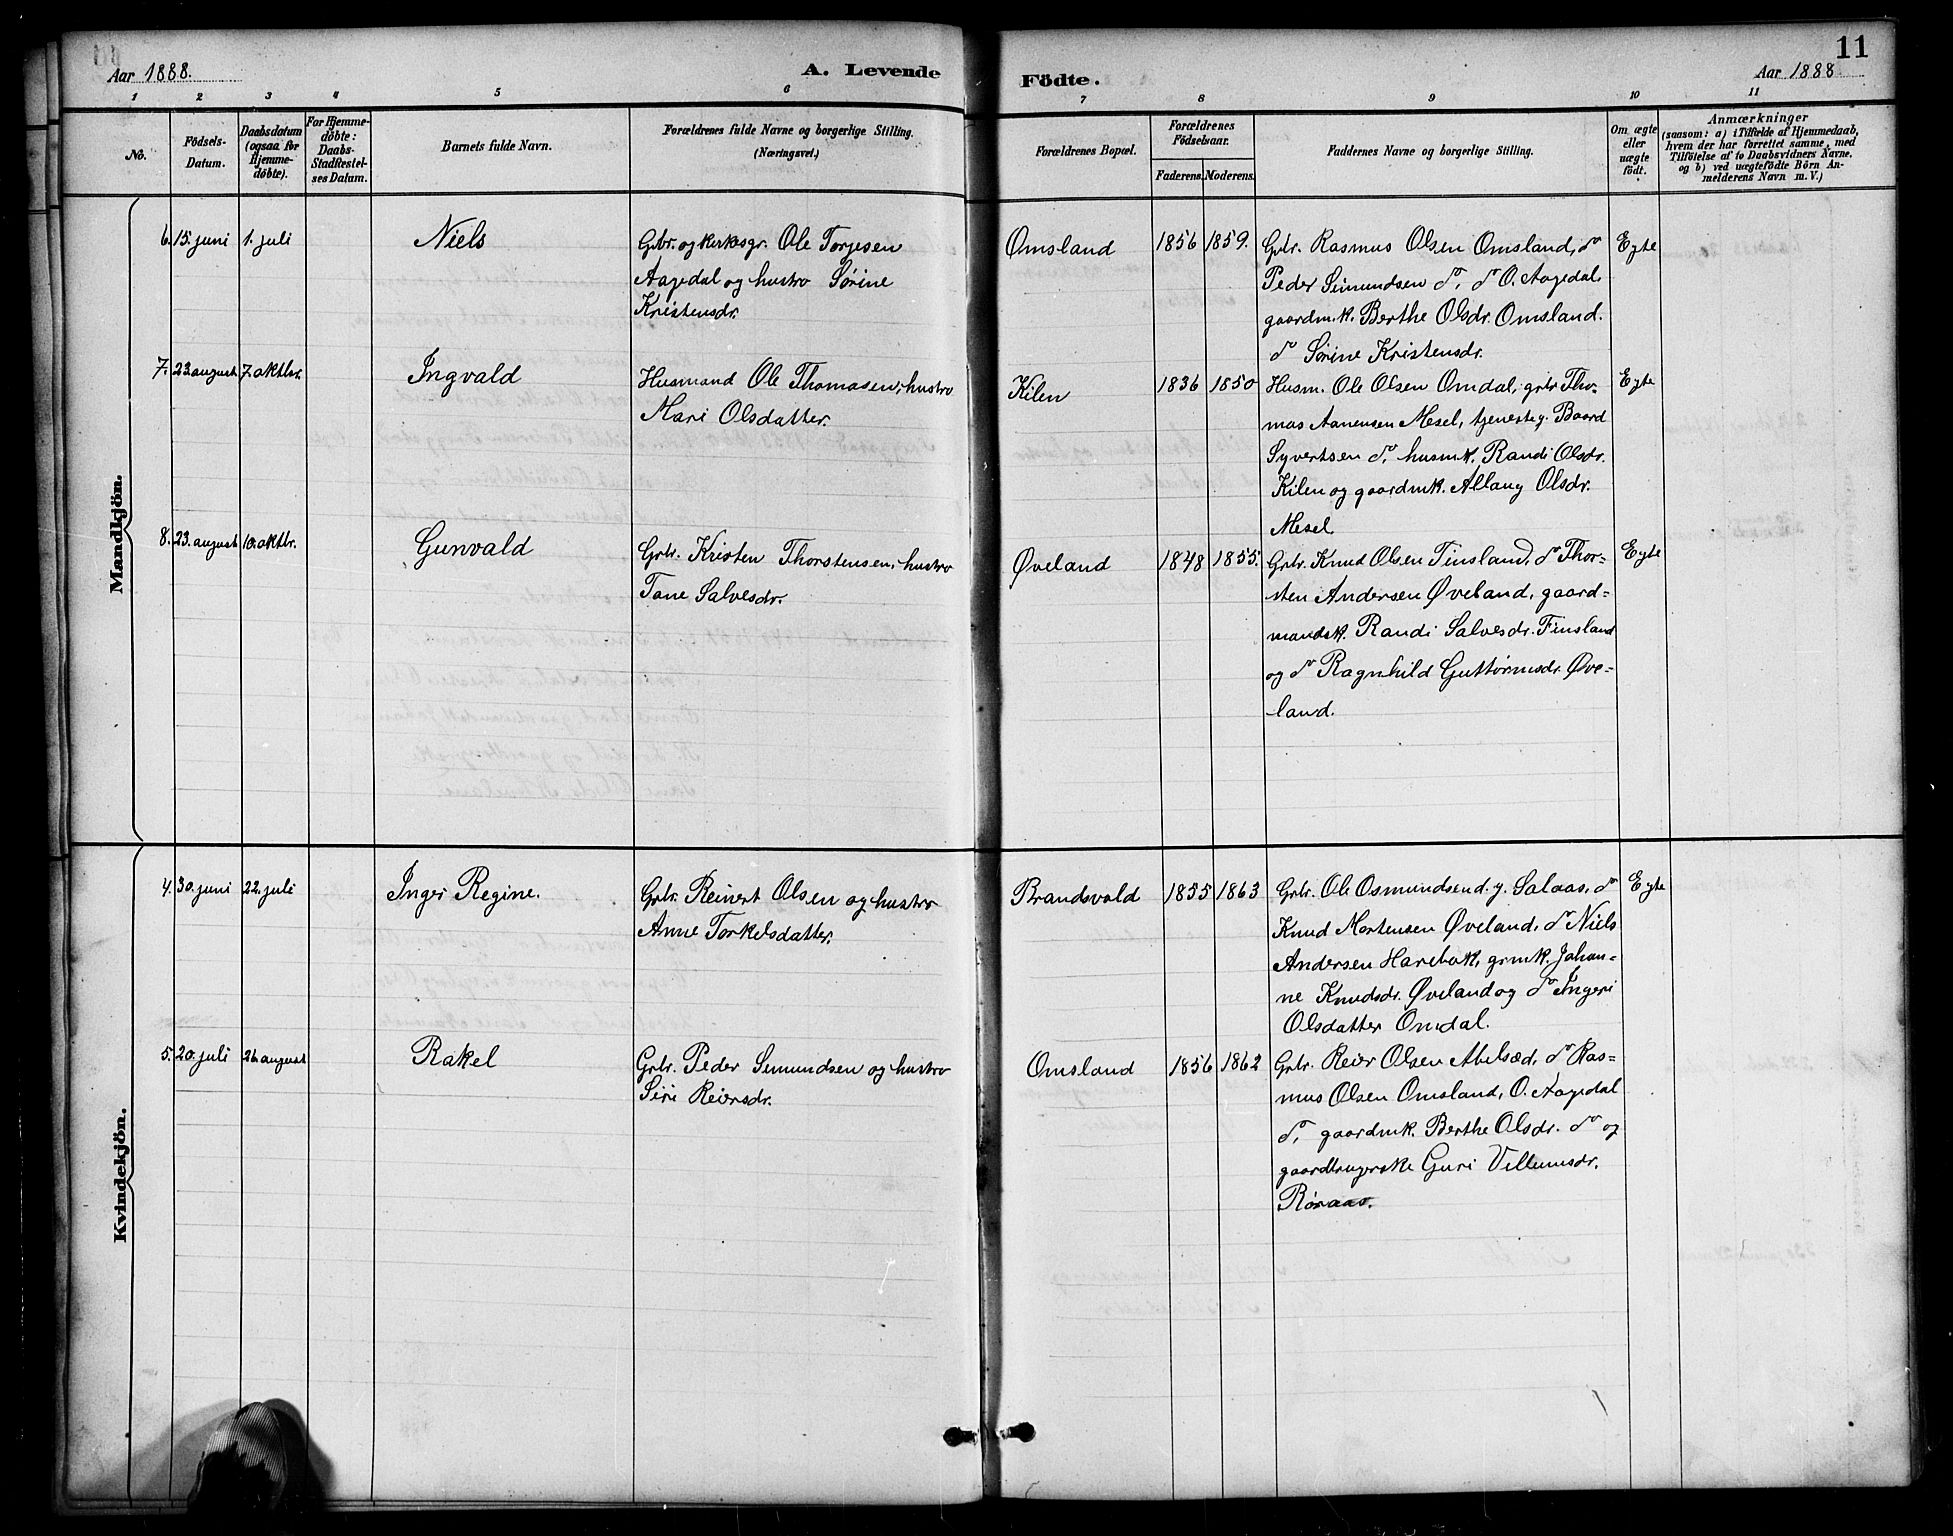 11
Aar 1888. A. Levende Födte. Aar 1888
1 2 3 4 5 6 7 8 9 10 11
No.
Födsels-
Datum.
Daabsdatum
(ogsaa for
Hjemme-
döbte).
For Hjemme-
döbte:
Daabs-
Stadfæstel-
ses Datum.
Barnets fulde Navn.
Forældrenes fulde Navne og borgerlige Stilling.
(Næringsvei.)
Forældrenes Bopæl.
Forældrenes
Födselsaar.
Faderens. Moderens.
Faddernes Navne og borgerlige Stilling.
Om ægte
eller
uægte
födt.
Anmærkninger
(saasom: a) i Tilfælde af Hjemmedaab,
hvem der har forrettet samme, med
Tilföielse af to Daabsvidners Navne,
og b) ved uægtefödte Börn An-
melderens Navn m. V.)
Mandkjön.
6. 15. juni 1. juli Niels
Gbr. og kirkesgr. Ole Torjesen
Aagedal og hustro Sørine
Kristensdr.
Omsland 1856 1859.
Gbr. Rasmus Olsen Omsland, do
Peder Simundsen do, do O. Aagedal,
gaardm.k. Berthe Olsdr. Omsland.
do Sørine Kristensdr.
Egte
7. 23. august 7. oktbr. Ingvald
Husmand Ole Thomasen, hustro
Mari Olsdatter.
Kilen 1836 1850
Husm. Ole Olsen Omdal, grbr. Tho-
mas Aanensen Mesel, tjenesteg. Baard
Syvertsen do, husmk. Randi Olsdr.
Kilen og gaardmk. Allaug Olsdr.
Mesel.
Egte
8. 23. august 10. oktbr. Gunvald
Grbr. Kristen Thorstensen, hustro
Tone Salvesdr.
Øveland 1848 1855.
Grbr. Knud Olsen Finsland, do Thor-
sten Andersen Øveland, gaard-
mandsk. Randi Salvesdr. Finsland
og do Ragnhild Guttormsdr. Øve-
land.
Egte
Kvindekjön.
4. 30. juni 22. juli Inger Regine.
Grbr. Reinert Olsen og hustro
Anne Torkelsdatter.
Brandsvold 1855 1863
Grbr. Ole Osmundsen d. y. Salaas, do
Knud Mortensen Øveland, do Niels
Andersen Harebak, grmk. Johan-
ne Knudsdr. Øveland og do Ingeri
Olsdatter Omdal.
Egte
5. 20. juli 26. august Rakel
Grbr. Peder Simundsen og hustro
Siri Reiersdr.
Omsland 1856 1862
Grbr. Reier Olsen Abelsæd, do Ras-
mus Olsen Omsland, O. Aagedal
do, gaardmk. Berthe Olsdr. do og
gaardbrugerske Guri Villumsdr.
Røraas.